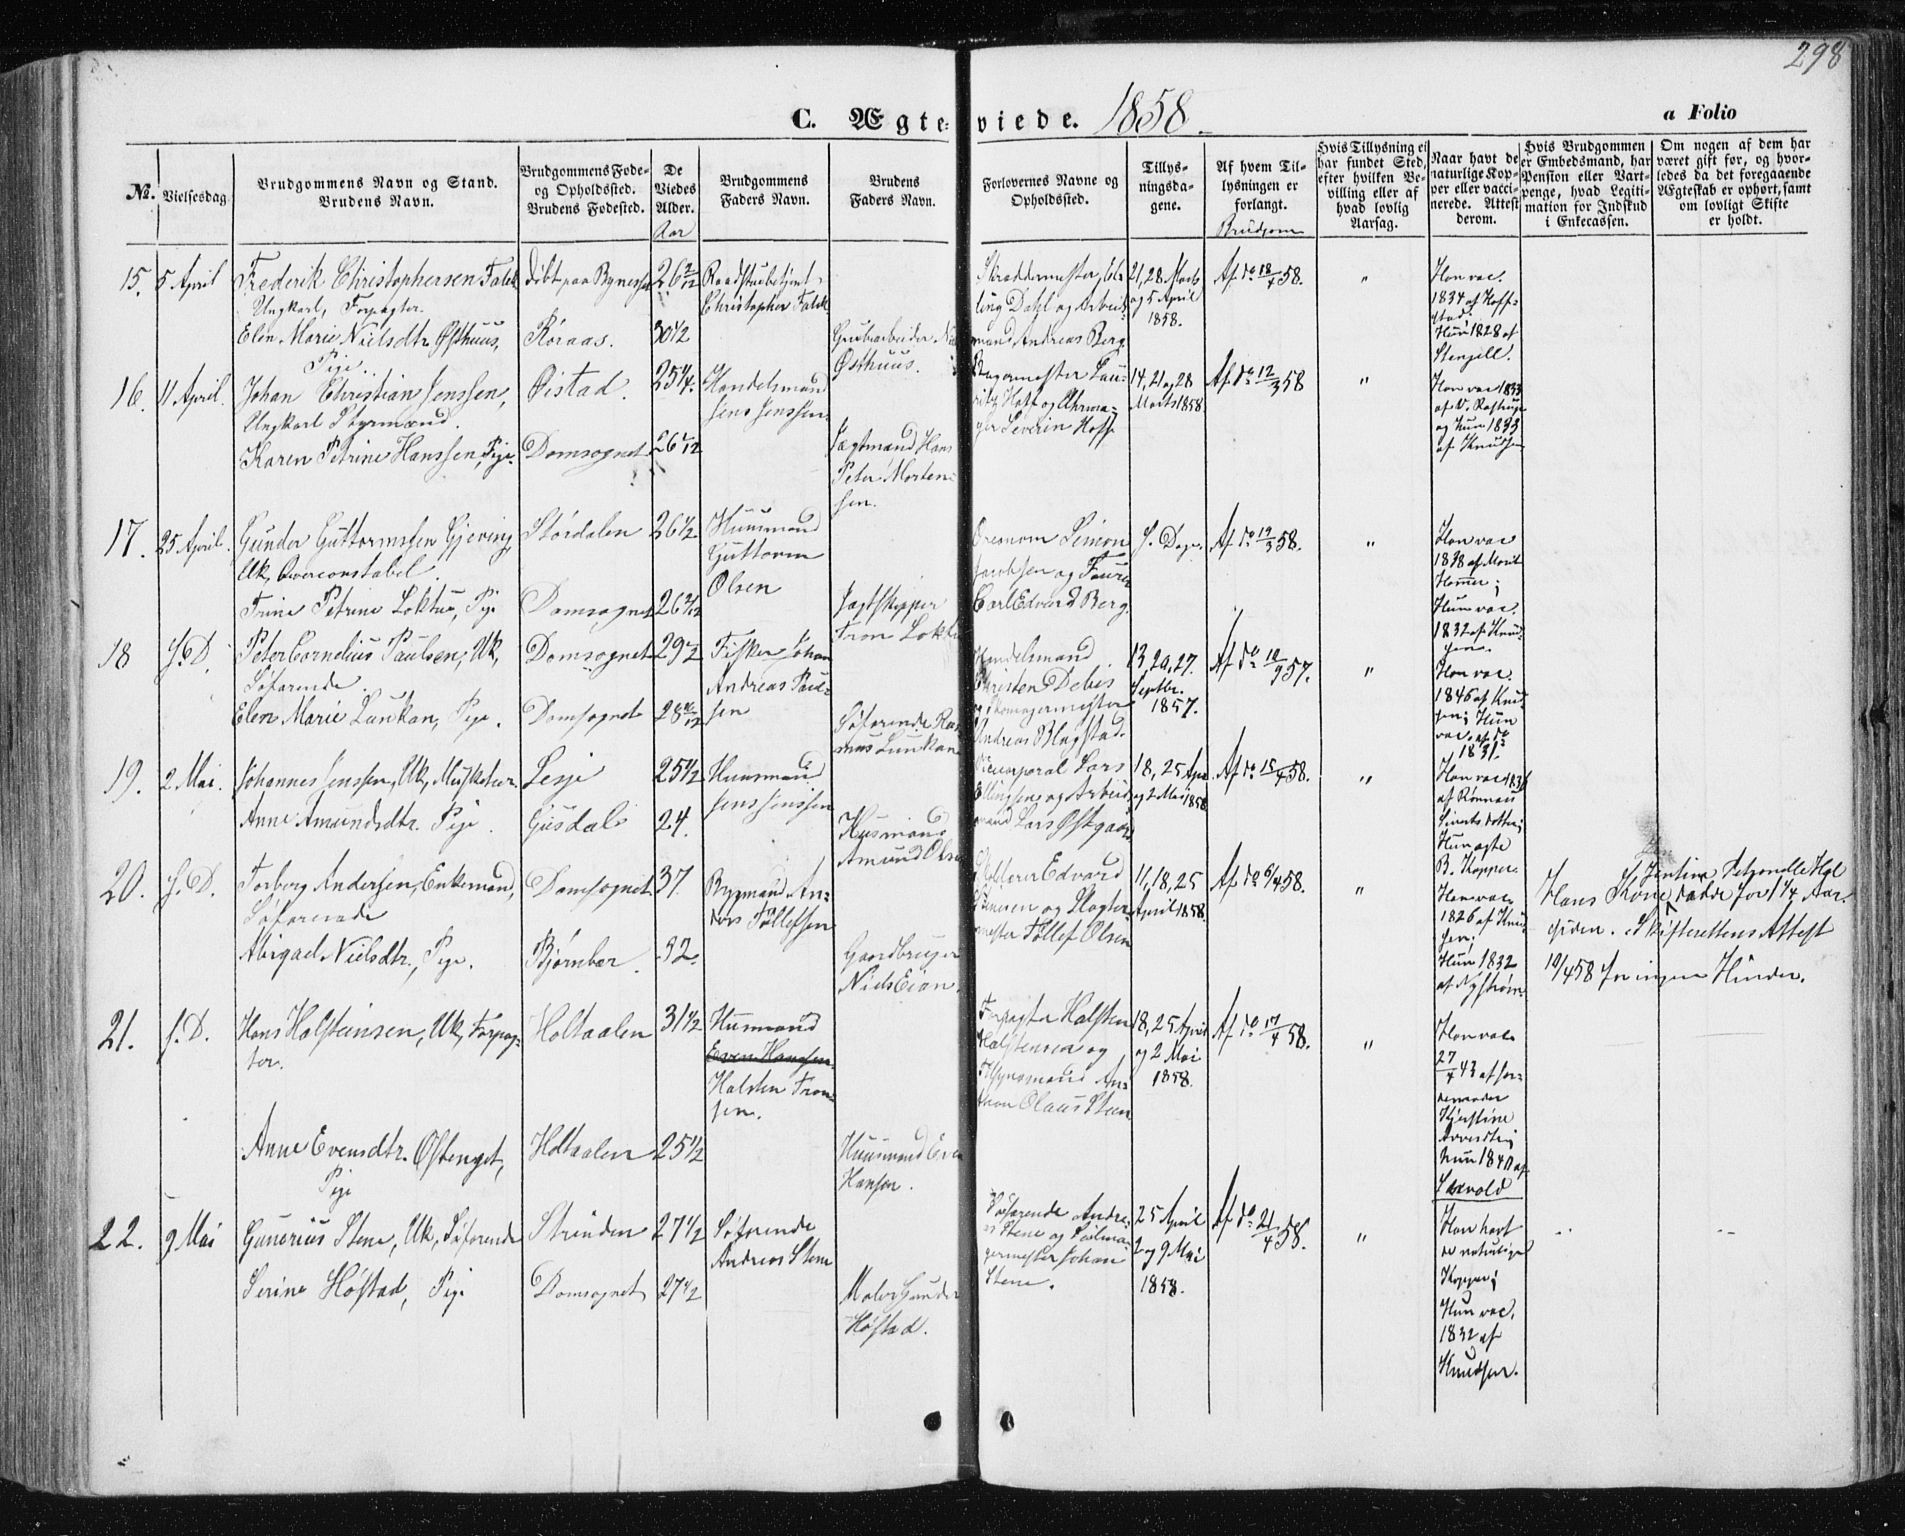 298
C. Ægteviede. 1858.
a Folio
No.
Vielsesdag
Brudgommens Navn og Stand.
Brudens Navn.
Brudgommens Føde- og Opholdssted.
Brudens Fødested.
De Viedes Alder.
Aar
Brudgommens Faders Navn.
Brudens Faders Navn.
Forlovernes Navne og Opholdssted.
Tillysningsdagene.
Af hvem Tillysningen er forlangt.
Brudgom
Hvis Tillysning ei har fundet Sted, efter hvilken Bevilling eller af hvad lovlig Aarsag.
Naar havt de naturlige Kopper eller vaccinerede. Attest derom.
Hvis Brudgommen er Embedsmand, har Pension eller Vartpenge, hvad Legitimation for Indskud i Enkecassen.
Om nogen af dem har været gift før, og hvorledes da det foregaaende Ægteskab er ophørt, samt om lovligt Skifte er holdt.
15. 5 April Frederik Christophersen Falck
Ungkarl, Forpagter.
døbt paa Bynesset 26 2/12
Christopher Falck
21, 28 Marts og 5 April 1858.
Af do 18/4 58. "
Han vac. 1834 af Hoffstad.
Hun 1828 af Stengill.
Elen Marie Nielsdtr Østhuus, Pige.
Røraas. 30 1/2
Grubearbeider
Østhuus.
mand Andreas Berg.
16. 11 April. Johan Christian Jenssen,
Ungkarl Styrmand.
Øistad. 25 1/4.
Handelsmand Jens Jenssen
Bagermester Lauritz Hoff og Uhrmager Severin Hoff
14, 21 og 28 Marts 1858.
Af do 12/3 58 "
Han vac 1833
og hun 1833 af Knudsen
Karen Petrine Hanssen, Pige.
Domsognet 26 1/12
Jægtmand Hans Peter Mortensen.
17. 25 April. Gunder Guttormssen Gjeving,
Uk, Overconstabel.
Størdalen 26 1/2.
Huusmand Guttorm Olsen
Simon Jacobsen og
Carl Edvard Berg.
S. Dage. Af do 12/3 58. "
Han vac 1838 af Morit Hommer;
Hun vac. 1832 af Knudsen.
Trine Petrine Loktu, Pige
Domsognet 26 3/12
Jagtskipper Tron Loktu
18 S. D. Peter Cornelius Paulsen, Uk,
Søfarende.
Domsognet 29 1/2
Fisker Johan Andreas Paulsen
Handelsmand Christen Debes
og Skomagermester Andreas Blegstad.
13, 20, 27. Septbr. 1857.
Af do 10/9 57. "
Han vac. 1846 af Knudsen; Hun vac. af do 1831.
Elen Marie Lunkan, Pige.
Domsognet 28 10/12
Søfarende Rasmus Lunkan
19. 2 Mai. Johannes Jenssen, Uk, Musketeer.
Lesje 25 1/2
Huusmand Jens Jenssen
Vicecorporal Lars Ellingsen og Arbeidsmand Lars Østgaard
18, 25 Apr og 2 Mai 1858
Af do 15/4 58. "
Han vac 1836 af Rønnau Sivertsdotter;
Hun ægte B. Kopper.
Anne Amundsdtr. Pige.
Gusdal 24.
Husmand Amund Olsen
20. S. D. Torberg Andersen, Enkemand,
Søfarende
Domsognet 37.
Bygmand Anders Tollefsen
Edvard
og Slagtermester Tollef Olsen
11, 18, 25 April 1858.
Af do 6/4 58. "
Han vac 1826 af Knudsen;
Hun 1832 af Nystrøm.
Hans Kone døde for 1 1/4 Aar siden. Skifterettens Attest 10/4 58 for ingen Hinder.
Abigael Nielsdtr., Pige.
Bjørnør. 32.
Gaardbruger Niels Eian.
21. S. D. Hans Halsteinsen, Uk, Forpagter.
Holtaalen 31 1/2
Husmand
Even Hansen
Halsten Tronsen.
Forpagter Halsten Halstensen og
Olaus Steen
18, 25 April og 2 Mai 1858.
Af do 17/4 58. "
Han vac 27/4 43 af Jordemoder Kjerstine
hun 1840 af
Anne Evensdtr. Østenget,
Pige
Holtaalen 25 1/2
Huusmand Even Hansen.
22. 9 Mai Gunerius Stene, Uk, Søfarende
Strinden 27 1/2
Søfarende Andreas Stene
Søfarende Andreas Stene og
Johan Stene.
25 April 2 og 9 Mai 1858.
Af do 21/4 58. "
Han havt de naturlige Kopper;
Hun vac. 1832 af Knudsen.
Serine Høstad, Pige
Domsognet 27 1/2
Maler Gunder Høstad.